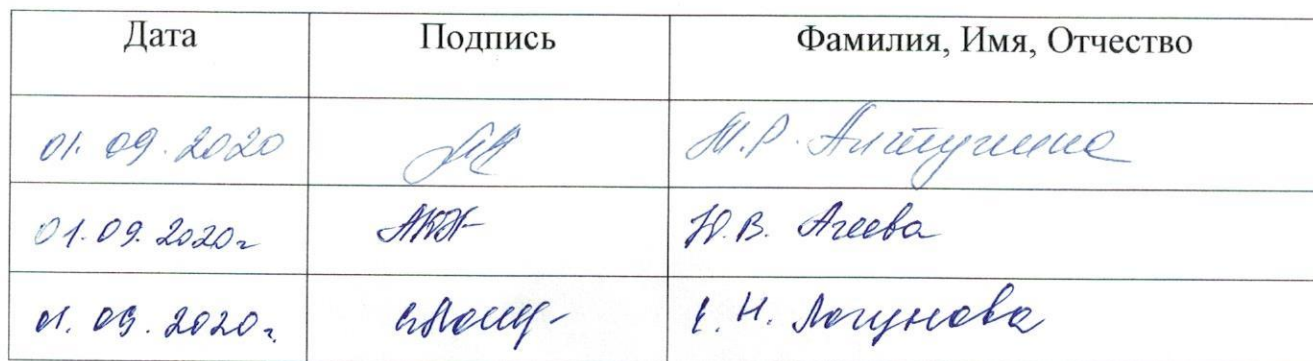 Дата Подпись Фамилия, Имя, Отчество
01.09.2020 М.Р. Алтунина
01.09.2020г Ю.В. Агеева
01.09.2020г. Н. Логунова